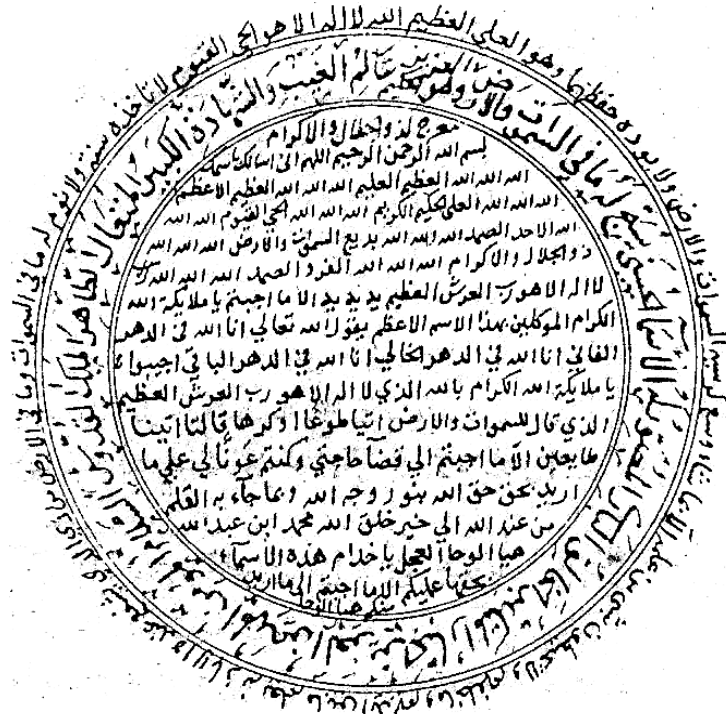 الله لا اله الا هو الحي القيوم لا تاخذه سنة ولا نوم له ما في السموات وما في الارض من ذا الذي يشفع عنده الا باذنه يعلم ما بين ايديهم وما خلفهم ولا يحيطون بشي من علمه الا بما شاء وسع كرسيه السموات والارض ولا يوده حفظهما وهو العلي العظيم
عالم الغيب والشهادة الكبير المتعال الطاهر الملك القدوس السلام المومن المهيمن العزيز الجبار المتكبر الخالق البارئ المصور له الاسما الحسنى يسبح له ما في السموات والارض وهو العزيز
معرج لذو الجلال والاكرام
بسم الله الرحمن الرحيم اللهم اني اسالك باسمك
الله الله الله العظيم العليم الله الله الله العظيم الاعظم
الله الله الله العلي الحكيم الكريم الله الله الله الحي القيوم الله الله
الله الاحد الصمد الله الله الله بديع السموات والارض الله الله الله
ذو الجلال والاكرام الله الله الله الفرد الصمد الله الله الله
لا اله الا هو رب العرش العظيم يد يد يد يد الا ما اجبتم يا ملايكة الله
الكرام الموكلين بهذا الاسم الاعظم يقول الله تعالي انا الله في الدهر
الفاني انا الله في الدهر الخالي انا الله في الدهر الباقي اجيبوا
يا ملايكة الله الكرام بالله الذي لا اله الا هو رب العرش العظيم
الذي قال للسموات والارض اتيا طوعا او كرها قالتا اتينا
طايعين الا ما اجبتم الي قضآ حاجتي وكنتم عونا لي علي ما
اريد بحق حق الله بنور وجه الله وبما جآء به القلم
من عند الله الي خير خلق الله محمد ابن عبد الله
هيا الوحا العجل يا خدام هذه الاسمآء
بحقها عليكم الا ما اجبتم الي ما اريد
هيا الوحا